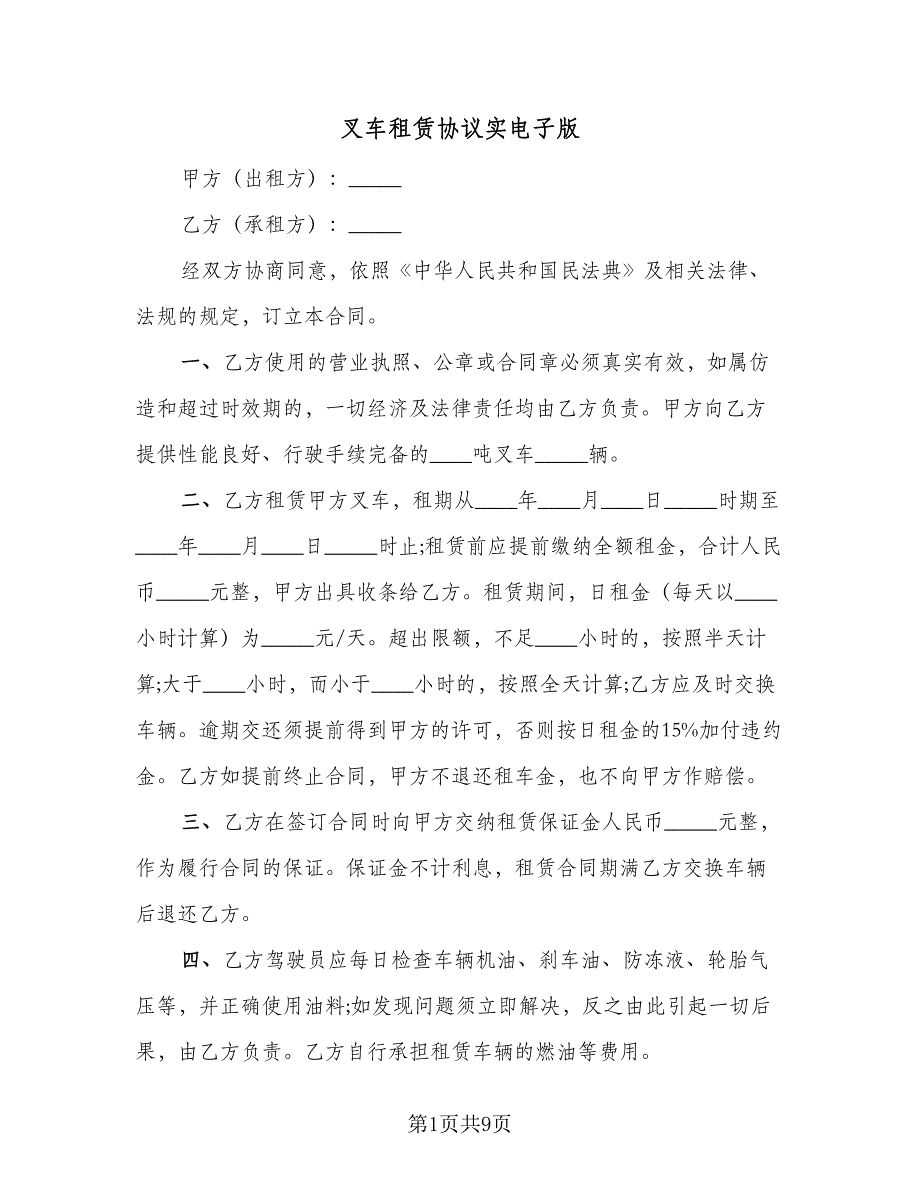 叉车租赁协议实电子版
甲方（出租方）：_____
乙方（承租方）：_____
经双方协商同意，依照《中华人民共和国民法典》及相关法律、
法规的规定，订立本合同。
一、乙方使用的营业执照、公章或合同章必须真实有效，如属仿
造和超过时效期的，一切经济及法律责任均由乙方负责。甲方向乙方
提供性能良好、行驶手续完备的____吨叉车_____辆。
二、乙方租赁甲方叉车，租期从____年____月____日_____时期至
____年____月____日_____时止;租赁前应提前缴纳全额租金，合计人民
币_____元整，甲方出具收条给乙方。租赁期间，日租金（每天以____
小时计算）为_____元/天。超出限额，不足____小时的，按照半天计
算;大于____小时，而小于____小时的，按照全天计算;乙方应及时交换
车辆。逾期交还须提前得到甲方的许可，否则按日租金的15%加付违约
金。乙方如提前终止合同，甲方不退还租车金，也不向甲方作赔偿。
三、乙方在签订合同时向甲方交纳租赁保证金人民币_____元整，
作为履行合同的保证。保证金不计利息，租赁合同期满乙方交换车辆
后退还乙方。
四、乙方驾驶员应每日检查车辆机油、刹车油、防冻液、轮胎气
压等，并正确使用油料;如发现问题须立即解决，反之由此引起一切后
果，由乙方负责。乙方自行承担租赁车辆的燃油等费用。
第1页共9页